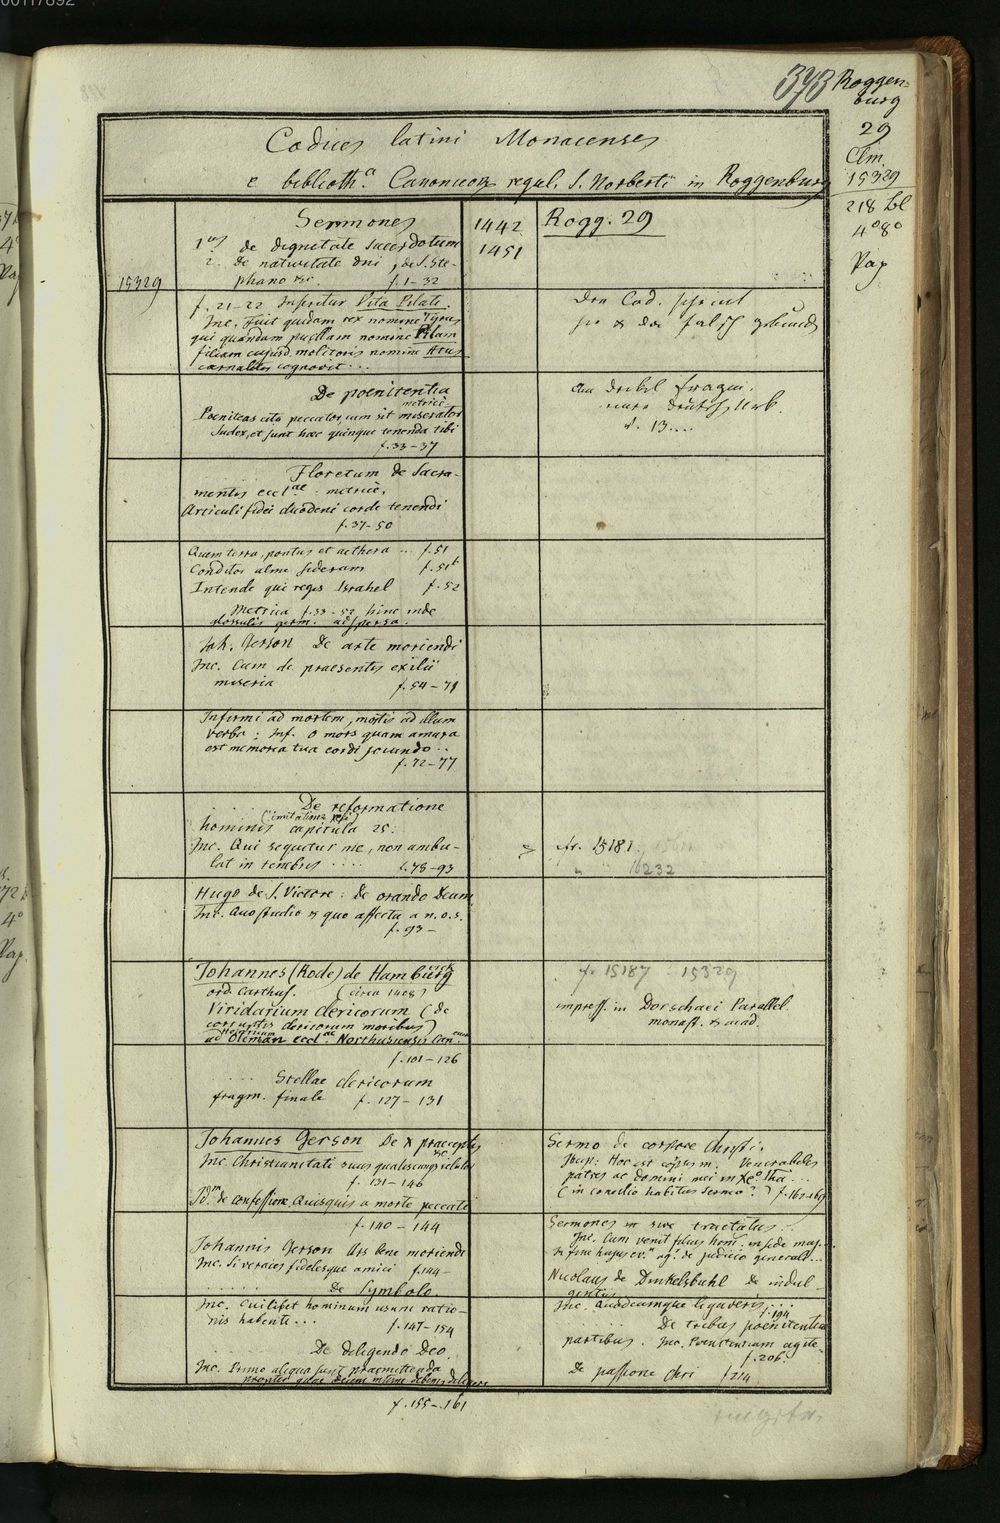 00117892
373
Roggen-
burg
29
Clm
15329
218 bl
4° 8°
Pap
Codices latini Monacenses
e biblioth.a Canonicor. regul. S. Norberti in Roggenburg
15329
Sermones
1us de dignitate Sacerdotum
2. de nativitate dni, de S. Ste-
phano etc. f. 1-32
1442
1451
Rogg. 29
f. 21-22 Inseritur Vita Pilati.
Inc. Fuit quidam rex nomine Tyrus
qui quandam puellam nomine Pilam
filiam cujusd. molitoris nomine Atus
carnaliter cognovit ...
Der Cod. scheint
falsch gebunden
De poenitentia
metrice
Poeniteas cito peccator, cum sit miserator
Judex, et sunt haec quinque tenenda tibi
f. 33-37
Am Deckel fragm.
einer deutsch. Urk.
v. 13....
Floretum de Sacra-
mentis eccl.ae metrice.
Articuli fidei duodeni corde tenendi
f. 37-50
Quem terra, pontus et aethera ... f. 51
Conditor alme siderum f. 51b
Intende qui regis Israhel f. 52
Metrica f. 33-52 hinc inde
glossulis germ. adspersa.
Joh. Gerson De arte moriendi
Inc. Cum de praesentis exilii
miseria f. 54-71
Infirmi ad mortem, mortis ad illum
verba: Inf. O mors quam amara
est memoria tua cordi jocundo ..
f. 72-77
De reformatione
(imitatione Xpi)
hominis capitula 25.
Inc. Qui sequitur me, non ambu-
lat in tenebris .... f. 78-93
cfr. 15181.
" 16232
Hugo de S. Victore: De orando Deum
Inc. Quo studio et quo affectu a n. o. s.
f. 93-
Johannes (Rode) de Hamburg
ord. Carthus. (circa 1408)
Viridarium clericorum (de
corruptis clericorum moribus)
ad Oleman eccl.ae Northusensis Can.cum
f. 101-126
15187 15329
impress. in Dorschaei Parallel.
monast. et acad.
..... Stellae clericorum
fragm. finale f. 127-131
Johannes Gerson De X praeceptis
etc.
Inc. Christianitati suus qualiscunque zelator
f. 131-146
Id.m de confessione. Quisquis a morte peccati
f. 140-144
Johannis Gerson Ars bene moriendi
Inc. Si veraces fidelesque amici f. 144-
..... De Symbolo.
Inc. Cuilibet hominum usum ratio-
nis habenti ... f. 147-154
..... De diligendo Deo.
Inc. Primo aliqua sunt praemittenda
propter quae Deum intime debemus diligere
f. 155-161
Sermo de corpore Christi.
Incip: Hoc est corpus m. Venerabiles
patres ac domini mei in Xro Ihu ...
(in concilio habitus sermo?) f. 162-169
Sermones in sive tractatus ..
Inc. Cum venit filius hom. in sede maj...
In fine hujus ev.ii agr. de judicio generali ...
Nicolaus de Dinkelsbuhl de indul
gentiis
Inc. Quodcumque ligaveris ....
f. 194
..... De tribus poenitentiae
partibus. Inc. Poenitentiam agite.
f. 206
De passione Chri f. 214